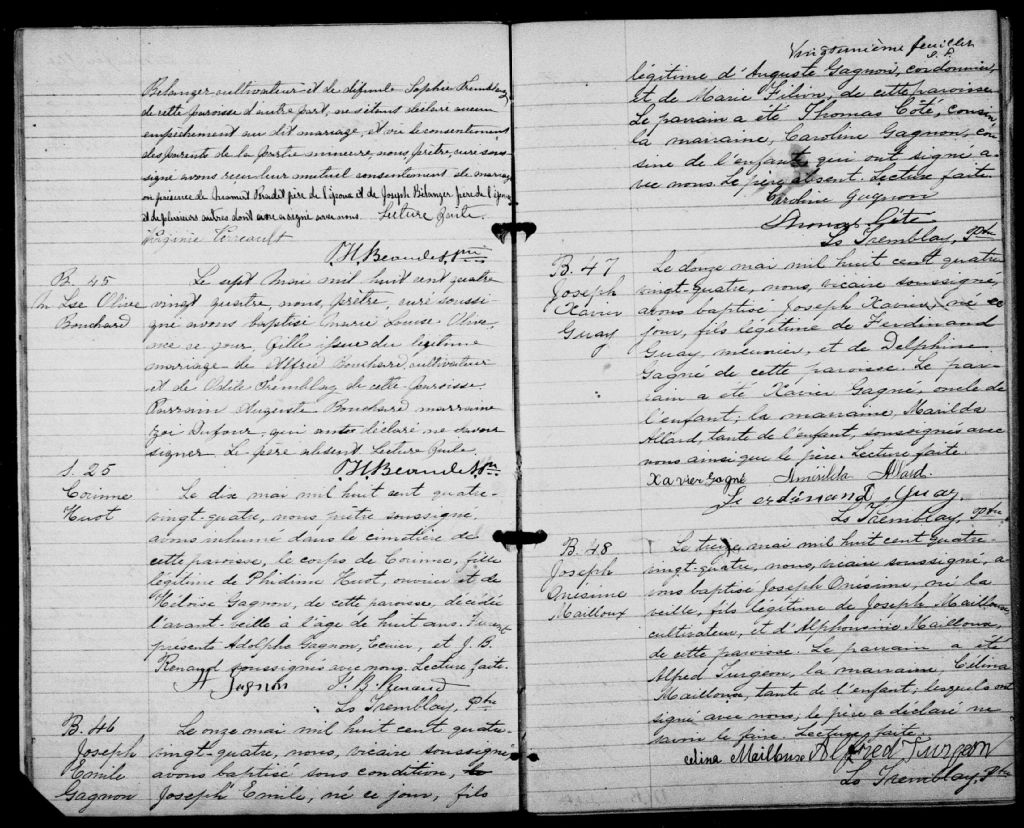 Belanger cultivateur et de défunte Sophie Tremblay
de cette paroisse d'autre part, ne s'étant déclaré aucun
empêchement au dit mariage, et vu le consentement
des parents de la partie mineure, nous, prêtre, curé sous-
signé avons reçu leur mutuel consentement de mariage
en présence de père de l'épouse et de Joseph Bélanger père de l'époux
et de plusieurs autres dont a signé avec nous. Lecture faite.
Virginie
B. 45
M. Lse Olive
Bouchard
Le sept mai mil huit cent quatre
vingt quatre, nous, prêtre, curé soussi
gné avons baptisé Marie Louise Olive,
née ce jour, fille issue du légitime
mariage de Alfred Bouchard, cultivateur
et de Tremblay de cette paroisse.
Parrain Auguste Bouchard marraine
Zoé Dufour, qui ont déclaré ne savoir
signer. Le père absent. Lecture faite.
S. 25
Corinne
Huot
Le dix mai mil huit cent quatre-
vingt-quatre, nous, prêtre soussigné,
avons inhumé dans le cimetière de
cette paroisse, le corps de Corinne, fille
légitime de Phidime Huot, ouvrier et de
Héloïse Gagnon, de cette paroisse, décédée
l'avant-veille à l'âge de huit ans. Furent
présents Adolphe Gagnon, Ecuier, et J. B.
Renaud soussignés avec nous. Lecture faite.
A Gagnon J. B. Renaud
Ls Tremblay, Ptre
B. 46
Joseph
Emile
Gagnon
Le onze mai mil huit cent quatre-
vingt-quatre, nous, vicaire soussigné
avons baptisé sous condition,
Joseph Emile, né ce jour, fils
Vingt-unième feuillet
légitime d'Auguste Gagnon, cordonnier,
et de Marie Filion, de cette paroisse
Le parrain a été Thomas Côté, cousin,
la marraine, Caroline Gagnon, cou
sine de l'enfant qui ont signé a-
vec nous. Le père absent. Lecture faite.
Caroline Gagnon
Thomas Côté
Ls Tremblay, Ptre
B. 47
Joseph
Xavier
Guay
Le douze mai mil huit cent quatre
vingt-quatre, nous, vicaire soussigné,
avons baptisé Joseph Xavier, né ce
jour, fils légitime de Ferdinand
Guay, meunier, et de Delphine
Gagné de cette paroisse. Le par-
rain a été Xavier Gagné, oncle de
l'enfant; la marraine, Marilda
Allard, tante de l'enfant, soussignés avec
nous ainsi que le père. Lecture faite.
Xavier Gagné Allard
Ferdinand Guay
Ls Tremblay, Ptre
B. 48
Joseph
Onésime
Mailloux
Le treize mai mil huit cent quatre-
vingt-quatre, nous, vicaire soussigné, a
vons baptisé Joseph Onésime, né la
veille, fils légitime de Joseph Mailloux
cultivateur, et d'Alphonsine Mailloux,
de cette paroisse. Le parrain a été
Alfred Turgeon, la marraine, Célina
Mailloux, tante de l'enfant; lesquels ont
signé avec nous; le père a déclaré ne
savoir le faire. Lecture faite
celina Maillouse Alfred Turgeon
Ls Tremblay, Ptre